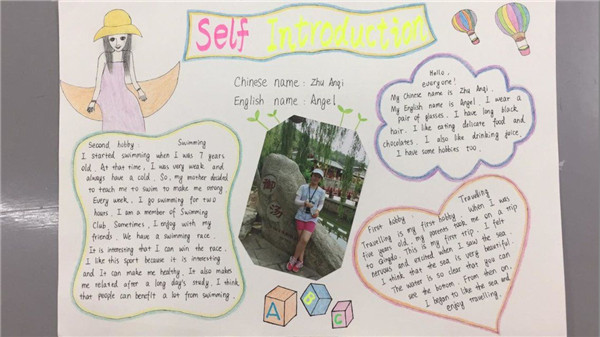 Self Introduction
Chinese name : Zhu Anqi
English name : Angel
Hello,
everyone!
My Chinese name is Zhu Anqi.
My English name is Angel. I wear a
pair of glasses. I have long black
hair. I like eating delicate food and
chocolates. I also like drinking juice.
I have some hobbies too.
Second hobby : Swimming
I started swimming when I was 7 years
old. At that time, I was very weak and
always have a cold. So, my mother decided
to teach me to swim to make me strong.
Every week, I go swimming for two
hours. I am a member of Swimming
Club. Sometimes, I enjoy with my
friends. We have a swimming race.
It is interesting that I can win the race.
I like this sport because it is interesting
and it can make me healthy. It also makes
me relaxed after a long day's study. I think
that people can benefit a lot from swimming.
御
汤
First hobby : Travelling
Travelling is my first hobby. When I was
five years old, my parents took me on a trip
to Qingdao. This is my first trip. I felt
nervous and excited when I saw the sea.
I think that the sea is very beautiful.
The water is so clear that you can
see the bottom. From then on,
I began to like the sea and
enjoy travelling.
A
B
C